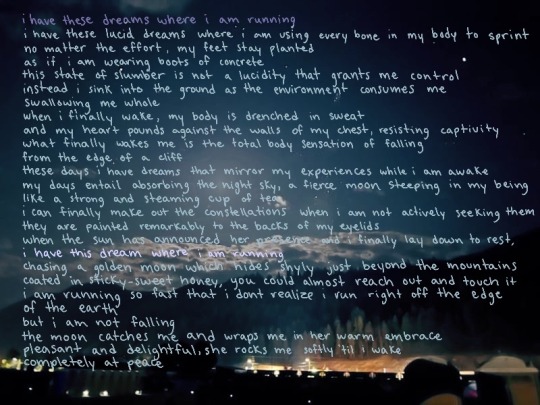 i have these dreams where i am running
i have these lucid dreams where i am using every bone in my body to sprint
no matter the effort, my feet stay planted
as if i am wearing boots of concrete
this state of slumber is not a lucidity that grants me control
instead i sink into the ground as the environment consumes me
swallowing me whole
when i finally wake, my body is drenched in sweat
and my heart pounds against the walls of my chest, resisting captivity
what finally wakes me is the total body sensation of falling
from the edge of a cliff
these days i have dreams that mirror my experiences while i am awake
my days entail absorbing the night sky, a fierce moon steeping in my being
like a strong and steaming cup of tea
i can finally make out the constellations when i am not actively seeking them
they are painted remarkably to the backs of my eyelids
when the sun has announced her presence and i finally lay down to rest,
i have this dream where i am running
chasing a golden moon which hides shyly just beyond the mountains
coated in sticky-sweet honey, you could almost reach out and touch it
i am running so fast that i dont realize i run right off the edge
of the earth
but i am not falling
the moon catches me and wraps me in her warm embrace
pleasant and delightful, she rocks me softly 'til i wake
completely at peace